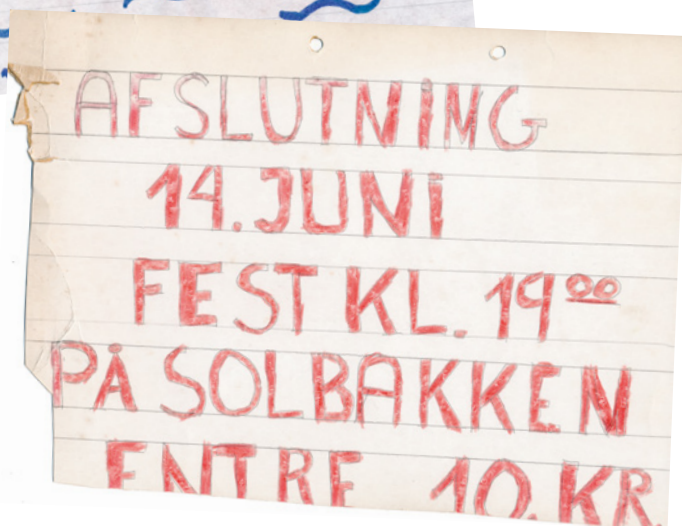 AFSLUTNING
14. JUNI
FEST KL. 19⁰⁰
PÅ SOLBAKKEN
ENTRE 10. KR.